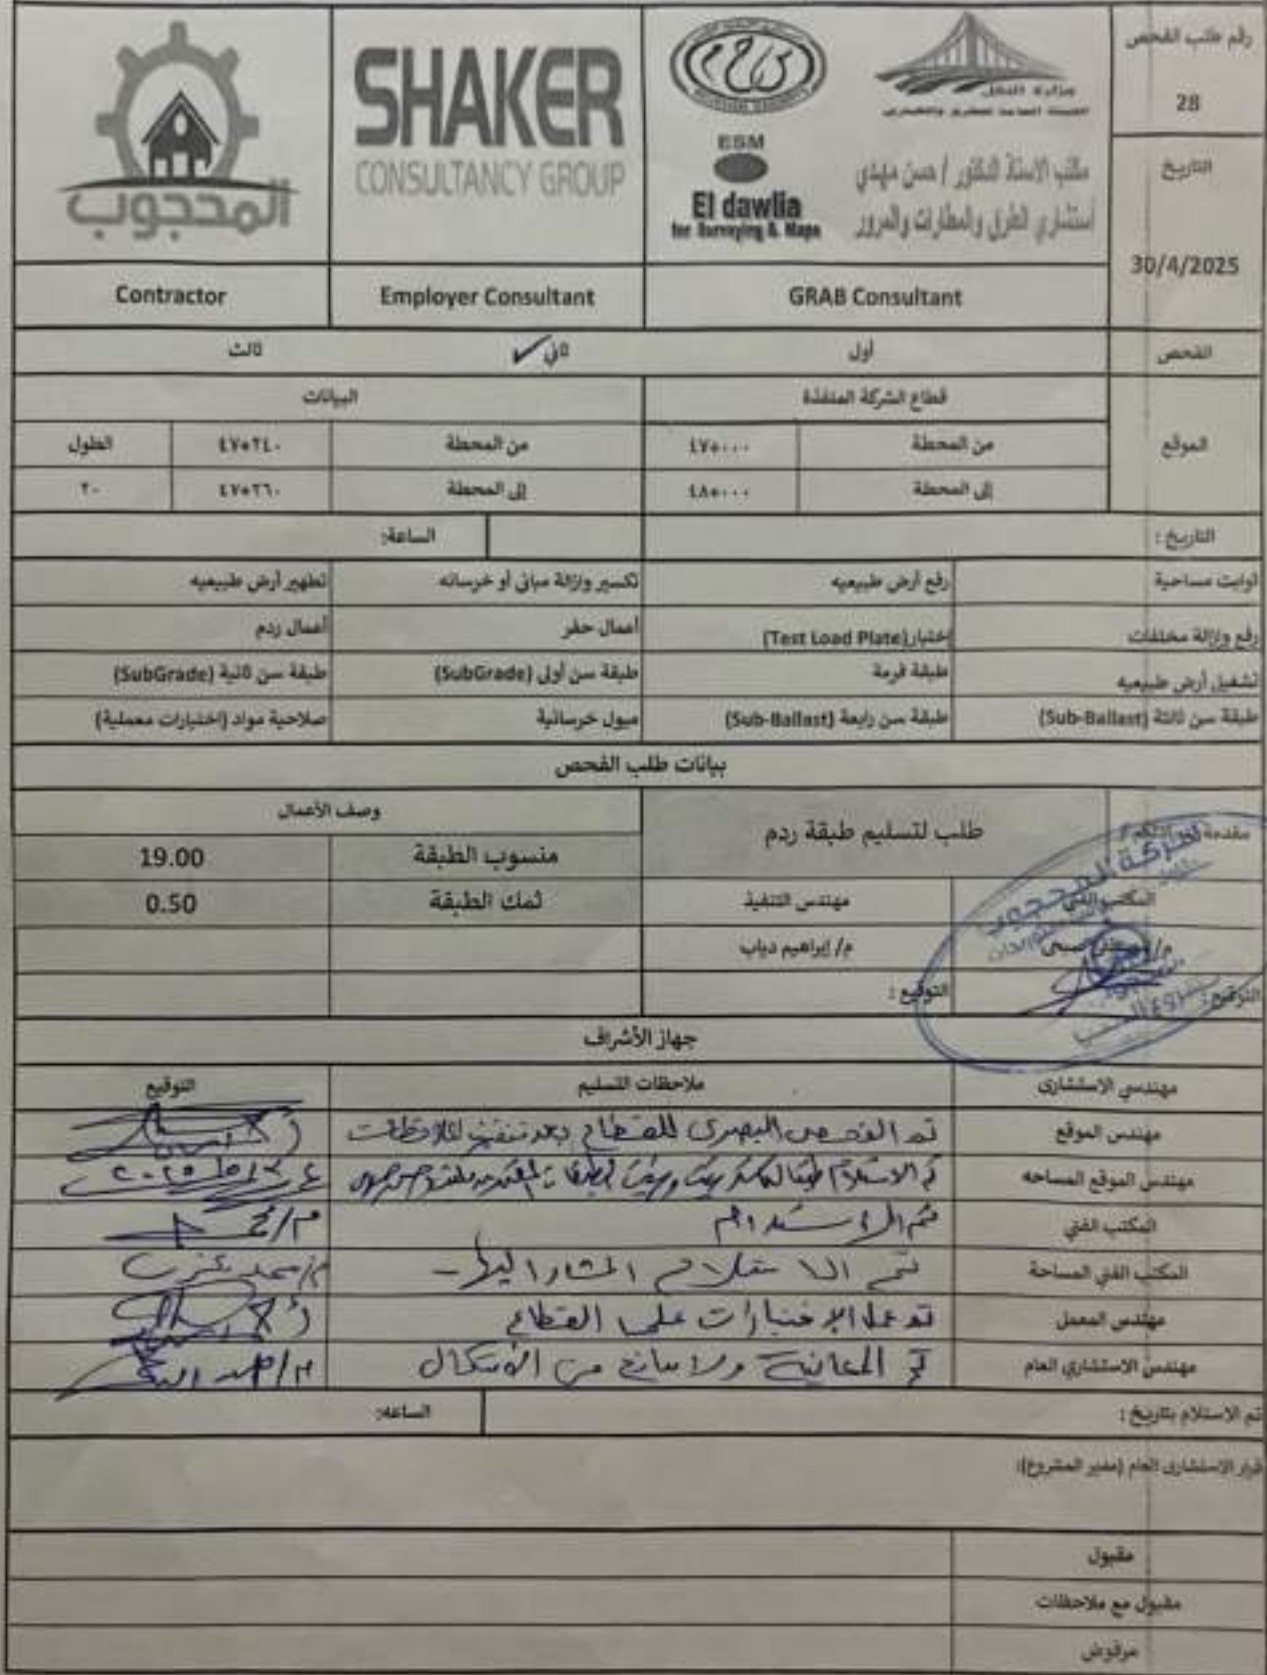 رقم طلب الفحص
28
التاريخ
30/4/2025
وزارة النقل
الهيئة العامة للطرق والكباري
مكتب الاستاذ الدكتور / حسن مهدي
أستشاري الطرق والمطارات والمرور
ESM
El dawlia
for Surveying & Maps
SHAKER
CONSULTANCY GROUP
المحجوب
GRAB Consultant
Employer Consultant
Contractor
الفحص
أول
ثاني ✓
ثالث
الموقع
قطاع الشركة المنفذة
البيانات
من المحطة
٤٧+٠٠٠
من المحطة
٤٧+٢٤٠
الطول
إلى المحطة
٤٨+٠٠٠
إلى المحطة
٤٧+٢٦٠
٢٠
التاريخ :
الساعة:
ثوابت مساحية
رفع أرض طبيعيه
تكسير وازالة مبانى أو خرسانه
تطهير أرض طبيعيه
رفع وإزالة مخلفات
إختبار(Test Load Plate)
أعمال حفر
أعمال ردم
تشغيل أرض طبيعيه
طبقة فرمة
طبقة سن أولى (SubGrade)
طبقة سن ثانية (SubGrade)
طبقة سن ثالثة (Sub-Ballast)
طبقة سن رابعة (Sub-Ballast)
ميول خرسانية
صلاحية مواد (اختبارات معملية)
بيانات طلب الفحص
طلب لتسليم طبقة ردم
وصف الأعمال
منسوب الطبقة
19.00
شركة المحجوب
المكتب الفني
مهندس التنفيذ
ثمك الطبقة
0.50
م/ إبراهيم دياب
التوقيع :
التوقيع :
جهاز الأشراف
مهندسي الاستشارى
ملاحظات التسليم
التوقيع
مهندس الموقع
تم الفحص البصرى للقطاع بعد تنفيذ الملاحظات
مهندس الموقع المساحه
تم الاستلام طبقا
المكتب الفني
تم الاستلام
المكتب الفني المساحة
تم الاستلام المشار اليها
مهندس المعمل
تم عمل الاختبارات على القطاع
مهندس الاستشاري العام
تم المعاينة ولا مانع من الأستكمال
تم الاستلام بتاريخ :
الساعه:
قرار الاستشارى العام (مدير المشروع):
مقبول
مقبول مع ملاحظات
مرفوض